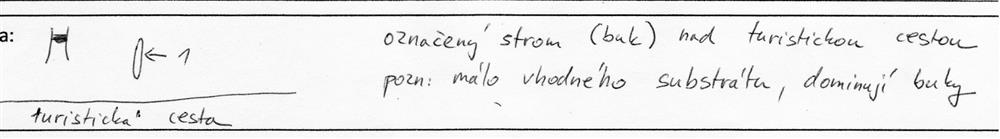 a:
← 1
turistická cesta
označený strom (buk) nad turistickou cestou
pozn: málo vhodného substrátu, dominují buky